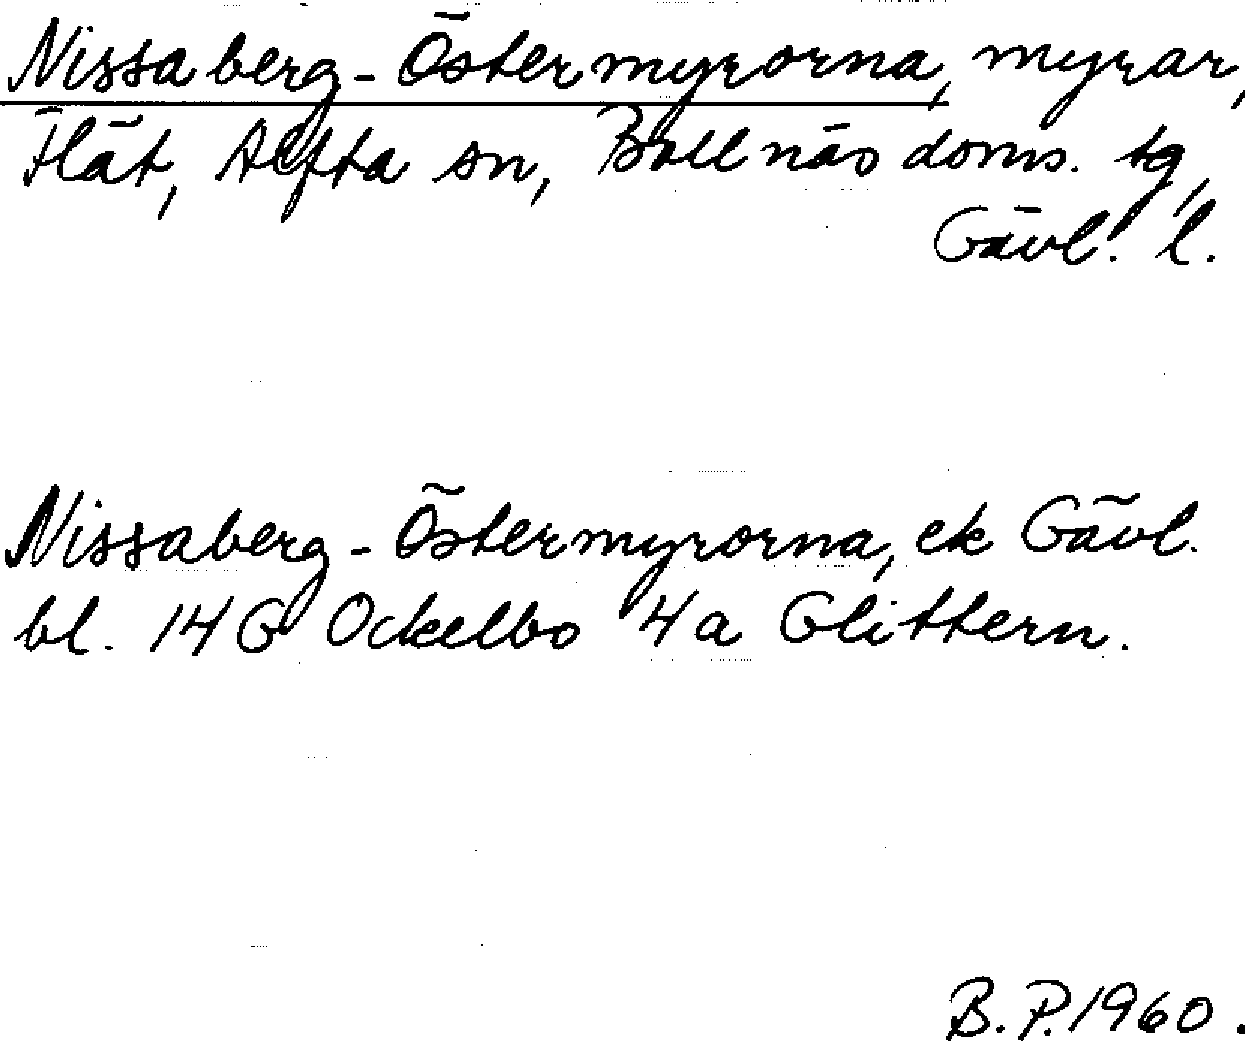 Nissaberg-Östermyrorna, myrar,
Flät, Alfta sn, Bollnäs doms. tg,
Gävl. l.
Nissaberg-Östermyrorna, ek Gävl.
bl. 14G Ockelbo 4a Glittern.
B.P.1960.